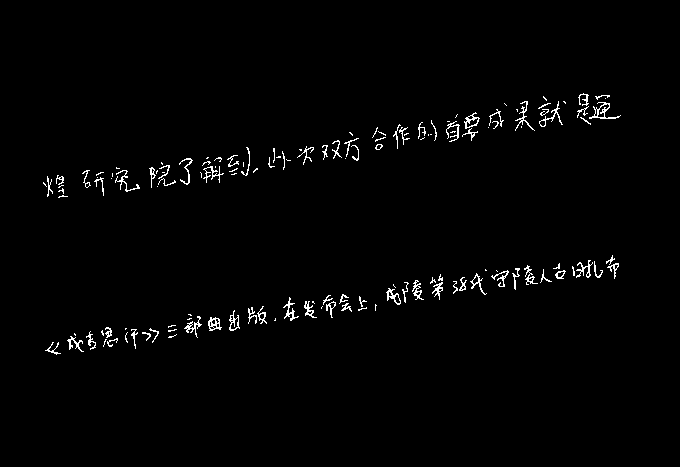 煌研究院了解到,此次双方合作的首要成果就是通
《成吉思汗》三部曲出版.在发布会上,成陵第38代守陵人古日扎布